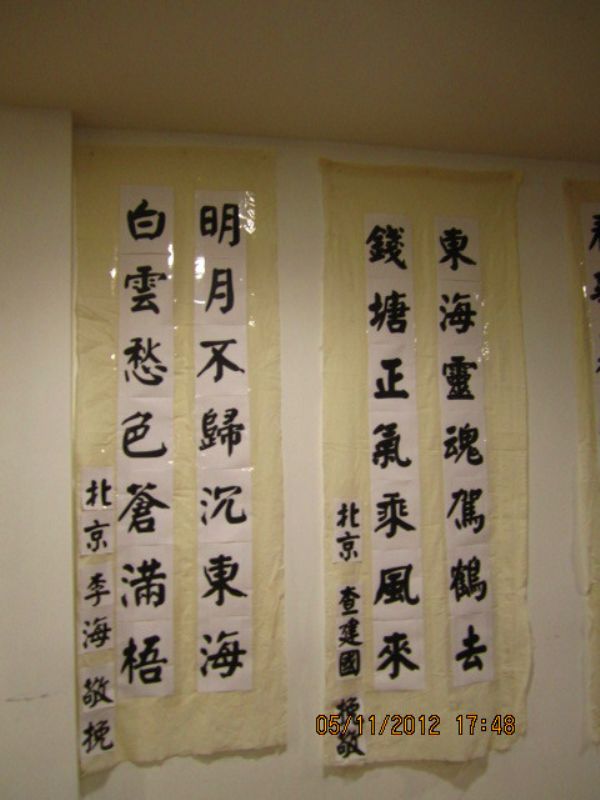 東海靈魂駕鶴去
錢塘正氣乘風來
北京 查建國 挽敬
明月不歸沉東海
白雲愁色蒼滿梧
北京 李海 敬挽
05/11/2012 17:48